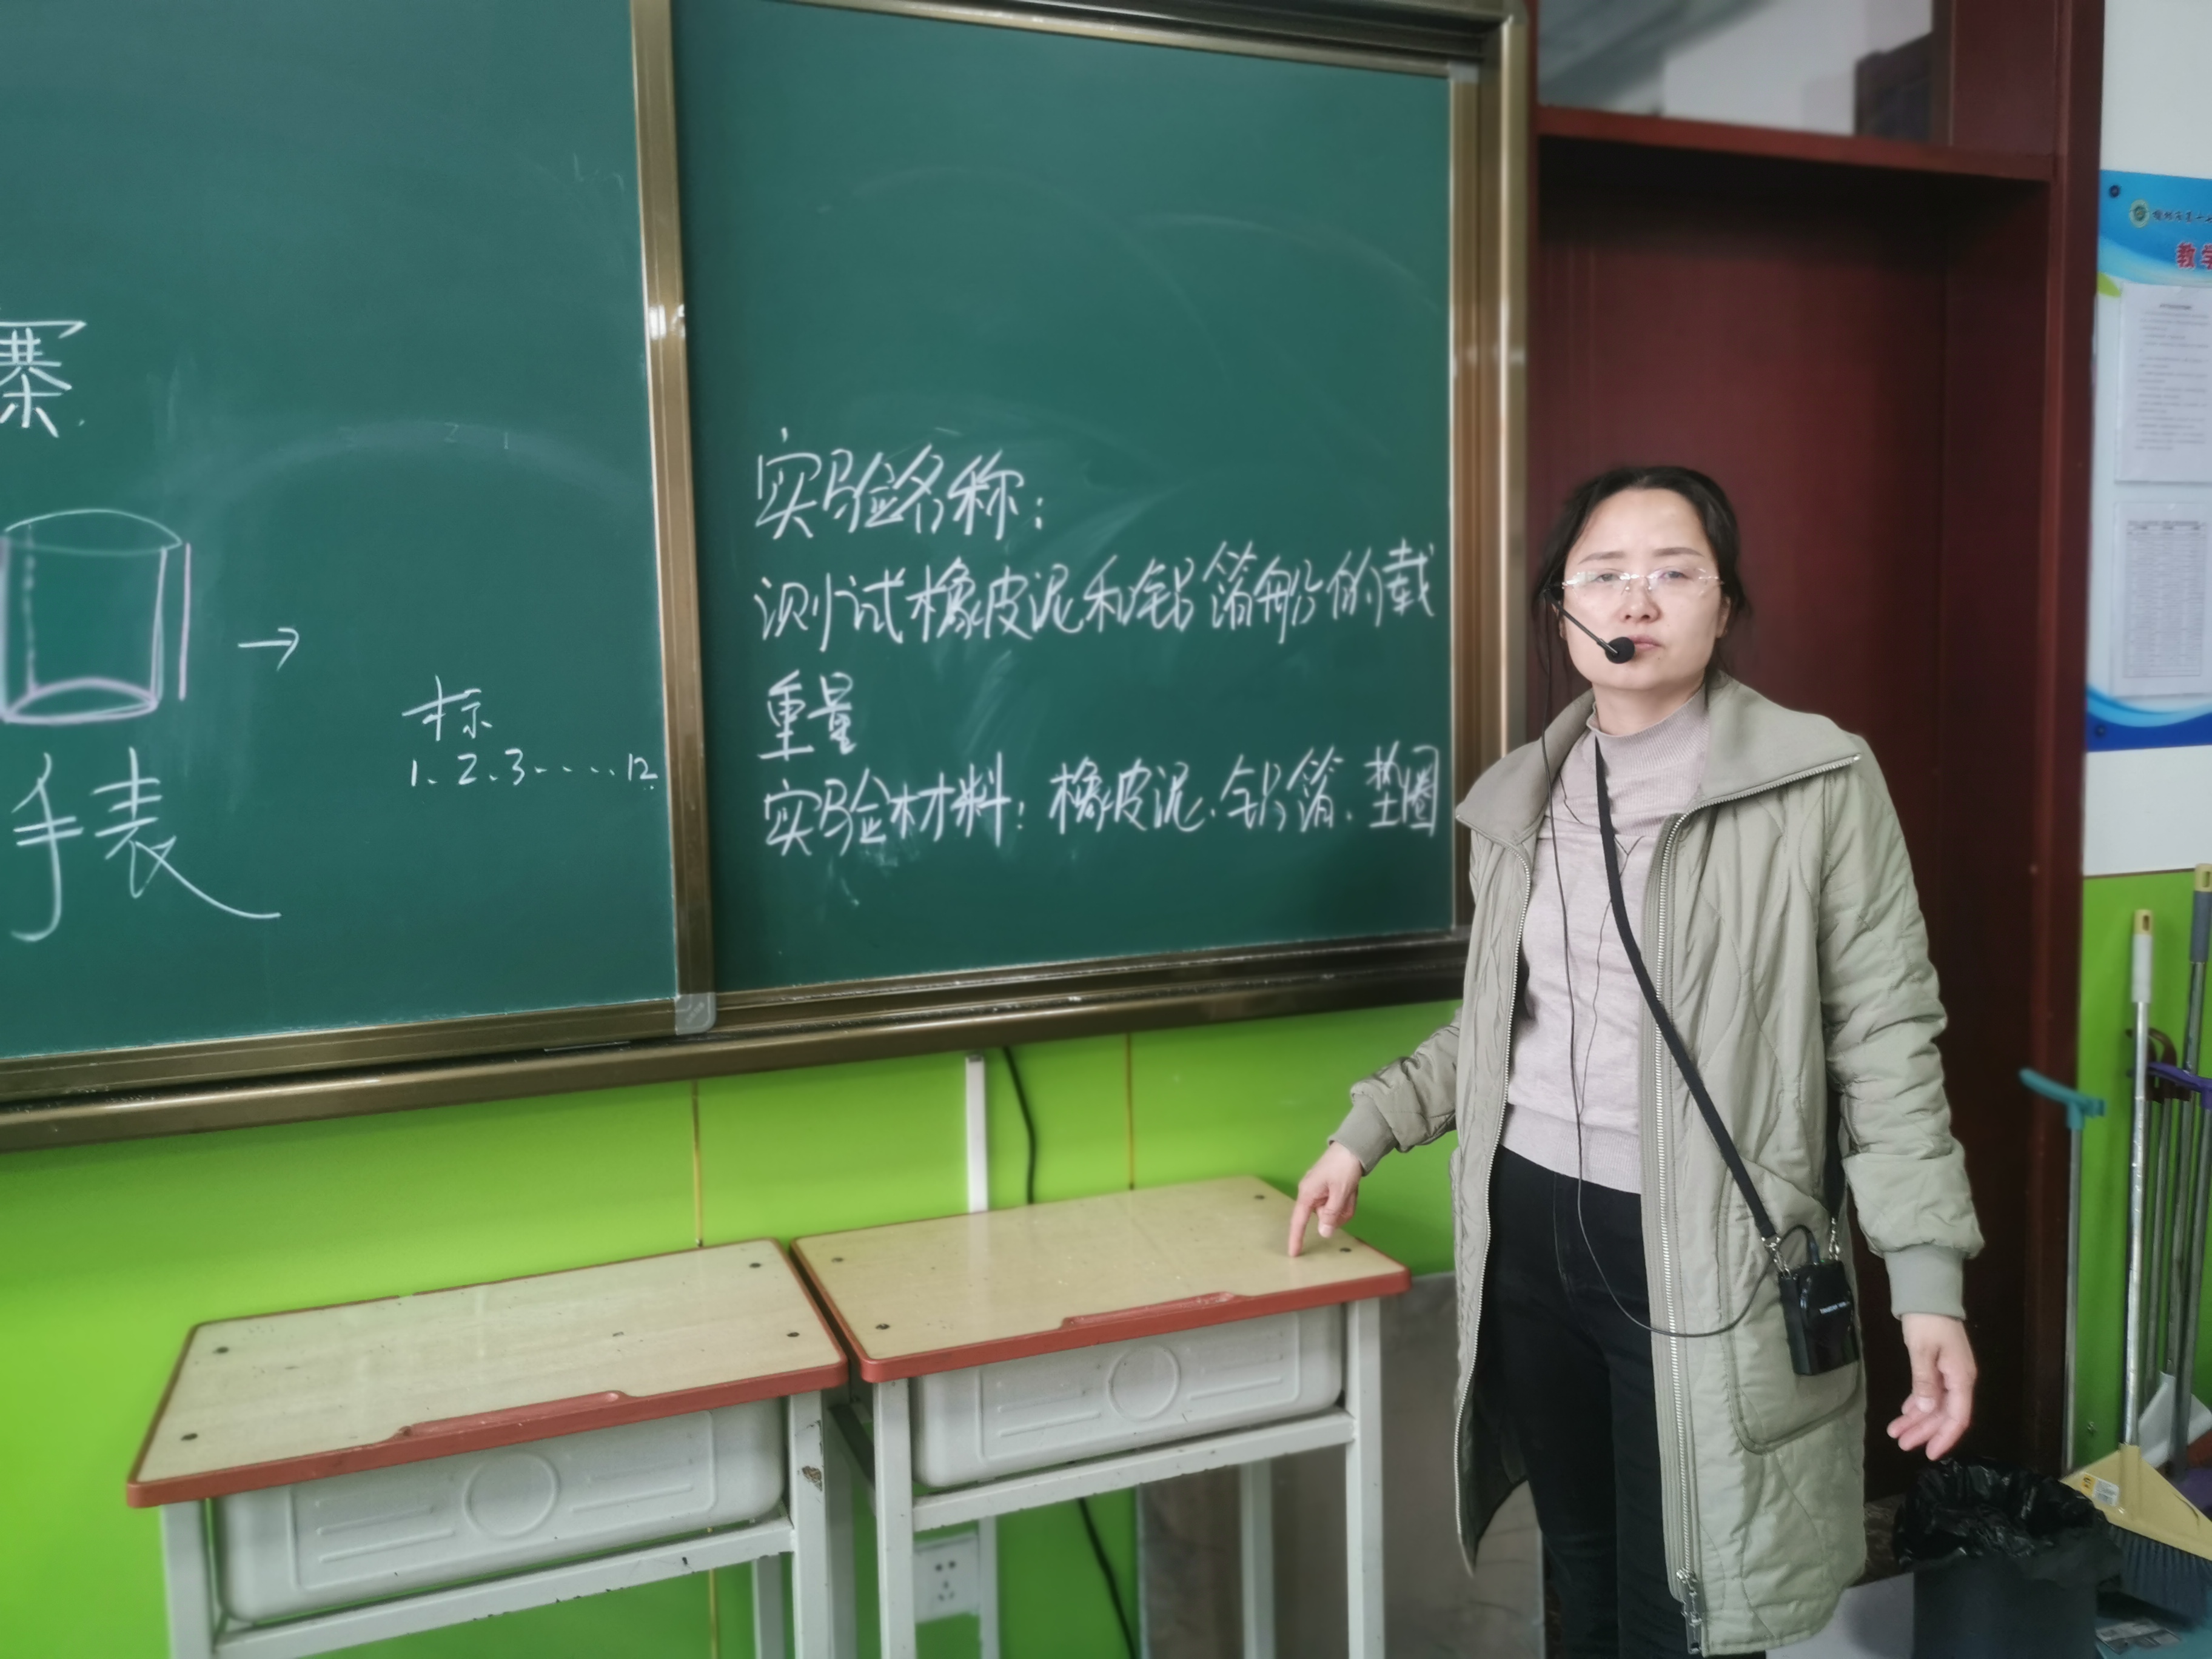 寨
手表
标
1、2、3.....12
实验名称：
测试橡皮泥和铝箔船的载
重量
实验材料：橡皮泥、铝箔、垫圈
教学